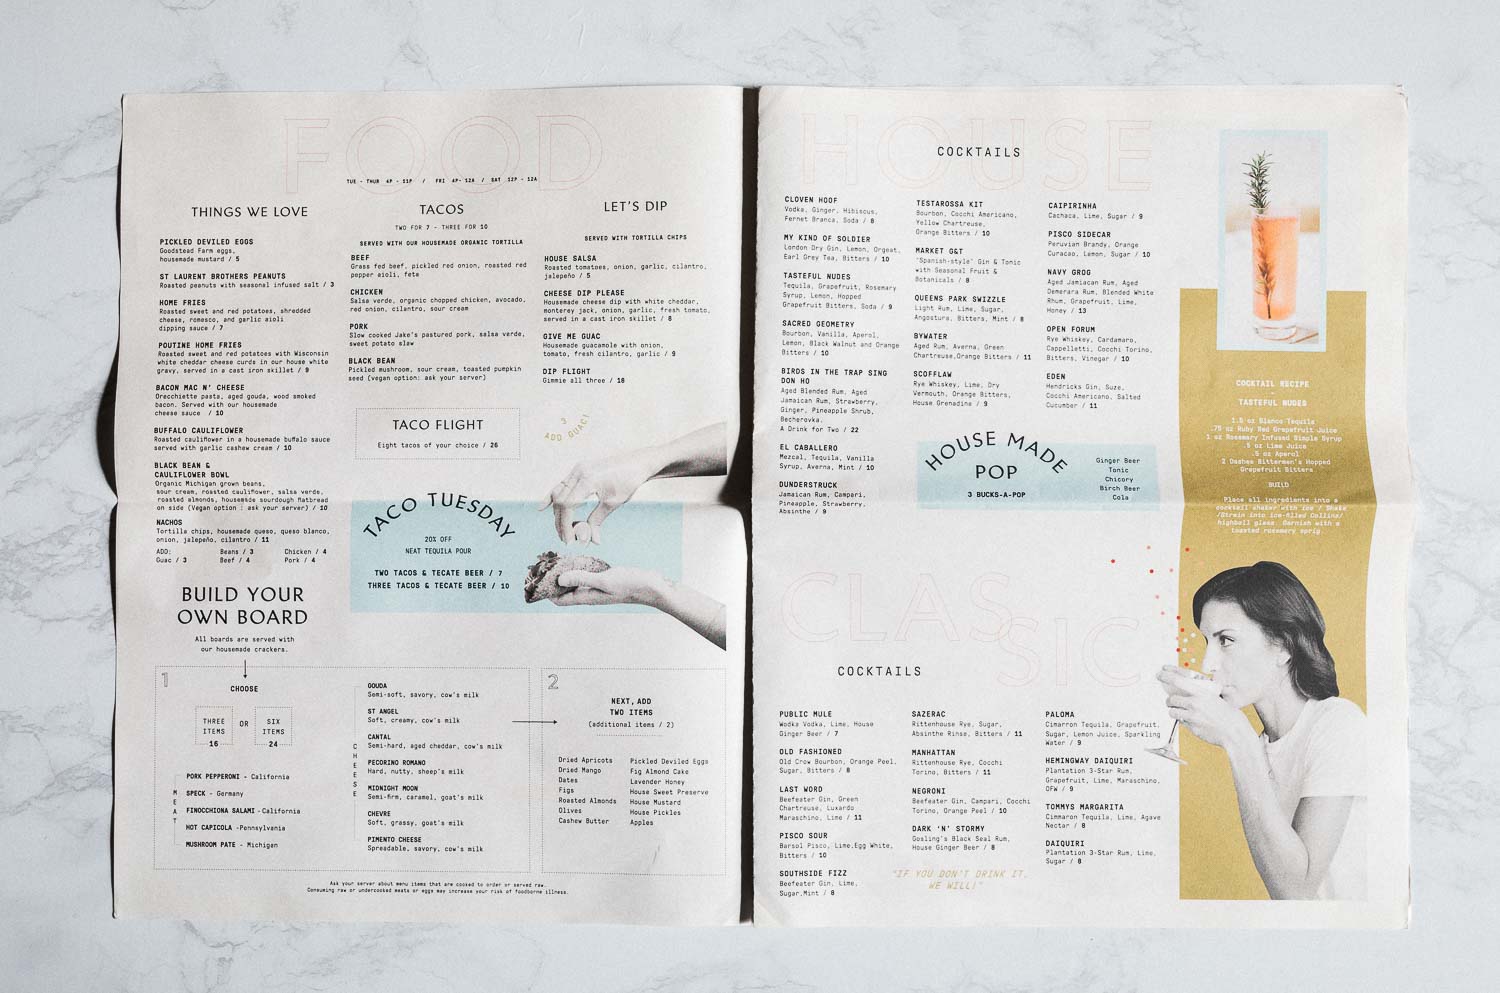 FOOD
TUE - THUR 4P - 11P / FRI 4P- 12A / SAT 12P - 12A
THINGS WE LOVE
PICKLED DEVILED EGGS
Goodstead Farm eggs,
housemade mustard / 5
ST LAURENT BROTHERS PEANUTS
Roasted peanuts with seasonal infused salt / 3
HOME FRIES
Roasted sweet and red potatoes, shredded
cheese, romesco, and garlic aioli
dipping sauce / 7
POUTINE HOME FRIES
Roasted sweet and red potatoes with Wisconsin
white cheddar cheese curds in our house white
gravy, served in a cast iron skillet / 9
BACON MAC N' CHEESE
Orecchiette pasta, aged gouda, wood smoked
bacon. Served with our housemade
cheese sauce / 10
BUFFALO CAULIFLOWER
Roasted cauliflower in a housemade buffalo sauce
served with garlic cashew cream / 10
BLACK BEAN &
CAULIFLOWER BOWL
Organic Michigan grown beans,
sour cream, roasted cauliflower, salsa verde,
roasted almonds, housemade sourdough flatbread
on side (Vegan option : ask your server) / 10
NACHOS
Tortilla chips, housemade queso, queso blanco,
onion, jalepeño, cilantro / 11
ADD: Beans / 3 Chicken / 4
Guac / 3 Beef / 4 Pork / 4
TACOS
TWO FOR 7 - THREE FOR 10
SERVED WITH OUR HOUSEMADE ORGANIC TORTILLA
BEEF
Grass fed beef, pickled red onion, roasted red
pepper aioli, feta
CHICKEN
Salsa verde, organic chopped chicken, avocado,
red onion, cilantro, sour cream
PORK
Slow cooked Jake's pastured pork, salsa verde,
sweet potato slaw
BLACK BEAN
Pickled mushroom, sour cream, toasted pumpkin
seed (vegan option: ask your server)
TACO FLIGHT
Eight tacos of your choice / 26
LET'S DIP
SERVED WITH TORTILLA CHIPS
HOUSE SALSA
Roasted tomatoes, onion, garlic, cilantro,
jalepeño / 5
CHEESE DIP PLEASE
Housemade cheese dip with white cheddar,
monterey jack, onion, garlic, fresh tomato,
served in a cast iron skillet / 8
GIVE ME GUAC
Housemade guacamole with onion,
tomato, fresh cilantro, garlic / 9
DIP FLIGHT
Gimmie all three / 18
3
ADD GUAC!
TACO TUESDAY
20% OFF
NEAT TEQUILA POUR
TWO TACOS & TECATE BEER / 7
THREE TACOS & TECATE BEER / 10
BUILD YOUR
OWN BOARD
All boards are served with
our housemade crackers.
1
CHOOSE
THREE
ITEMS
16
OR
SIX
ITEMS
24
MEAT
PORK PEPPERONI - California
SPECK - Germany
FINOCCHIONA SALAMI - California
HOT CAPICOLA -Pennsylvania
MUSHROOM PATE - Michigan
CHEESE
GOUDA
Semi-soft, savory, cow's milk
ST ANGEL
Soft, creamy, cow's milk
CANTAL
Semi-hard, aged cheddar, cow's milk
PECORINO ROMANO
Hard, nutty, sheep's milk
MIDNIGHT MOON
Semi-firm, caramel, goat's milk
CHEVRE
Soft, grassy, goat's milk
PIMENTO CHEESE
Spreadable, savory, cow's milk
2
NEXT, ADD
TWO ITEMS
(additional items / 2)
Dried Apricots
Dried Mango
Dates
Figs
Roasted Almonds
Olives
Cashew Butter
Pickled Deviled Eggs
Fig Almond Cake
Lavender Honey
House Sweet Preserve
House Mustard
House Pickles
Apples
Ask your server about menu items that are cooked to order or served raw.
Consuming raw or undercooked meats or eggs may increase your risk of foodborne illness.
HOUSE
COCKTAILS
CLOVEN HOOF
Vodka, Ginger, Hibiscus,
Fernet Branca, Soda / 8
MY KIND OF SOLDIER
London Dry Gin, Lemon, Orgeat,
Earl Grey Tea, Bitters / 10
TASTEFUL NUDES
Tequila, Grapefruit, Rosemary
Syrup, Lemon, Hopped
Grapefruit Bitters, Soda / 9
SACRED GEOMETRY
Bourbon, Vanilla, Aperol,
Lemon, Black Walnut and Orange
Bitters / 10
BIRDS IN THE TRAP SING
DON HO
Aged Blended Rum, Aged
Jamaican Rum, Strawberry,
Ginger, Pineapple Shrub,
Becherovka.
A Drink for Two / 22
EL CABALLERO
Mezcal, Tequila, Vanilla
Syrup, Averna, Mint / 10
DUNDERSTRUCK
Jamaican Rum, Campari,
Pineapple, Strawberry,
Absinthe / 9
TESTAROSSA KIT
Bourbon, Cocchi Americano,
Yellow Chartreuse,
Orange Bitters / 10
MARKET G&T
'Spanish-style' Gin & Tonic
with Seasonal Fruit &
Botanicals / 8
QUEENS PARK SWIZZLE
Light Rum, Lime, Sugar,
Angostura, Bitters, Mint / 8
BYWATER
Aged Rum, Averna, Green
Chartreuse,Orange Bitters / 11
SCOFFLAW
Rye Whiskey, Lime, Dry
Vermouth, Orange Bitters,
House Grenadina / 9
CAIPIRINHA
Cachaca, Lime, Sugar / 9
PISCO SIDECAR
Peruvian Brandy, Orange
Curacao, Lemon, Sugar / 10
NAVY GROG
Aged Jamiacan Rum, Aged
Demerara Rum, Blended White
Rhum, Grapefruit, Lime,
Honey / 13
OPEN FORUM
Rye Whiskey, Cardamaro,
Cappelletti, Cocchi Torino,
Bitters, Vinegar / 10
EDEN
Hendricks Gin, Suze,
Cocchi Americano, Salted
Cucumber / 11
HOUSE MADE
POP
3 BUCKS-A-POP
Ginger Beer
Tonic
Chicory
Birch Beer
Cola
COCKTAIL RECIPE
-
TASTEFUL NUDES
1.5 oz Blanco Tequila
.75 oz Ruby Red Grapefruit Juice
1 oz Rosemary Infused Simple Syrup
.5 oz Lime Juice
.5 oz Aperol
2 Dashes Bitterman's Hopped
Grapefruit Bitters
BUILD
Place all ingredients into a
cocktail shaker with ice / Shake
/Strain into ice-filled Collins/
highball glass. Garnish with a
toasted rosemary sprig.
CLASSIC
COCKTAILS
PUBLIC MULE
Wodka Vodka, Lime, House
Ginger Beer / 7
OLD FASHIONED
Old Crow Bourbon, Orange Peel,
Sugar, Bitters / 8
LAST WORD
Beefeater Gin, Green
Chartreuse, Luxardo
Maraschino, Lime / 11
PISCO SOUR
Barsol Pisco, Lime,Egg White,
Bitters / 10
SOUTHSIDE FIZZ
Beefeater Gin, Lime,
Sugar,Mint / 8
SAZERAC
Rittenhouse Rye, Sugar,
Absinthe Rinse, Bitters / 11
MANHATTAN
Rittenhouse Rye, Cocchi
Torino, Bitters / 11
NEGRONI
Beefeater Gin, Campari, Cocchi
Torino, Orange Peel / 10
DARK 'N' STORMY
Gosling's Black Seal Rum,
House Ginger Beer / 8
"IF YOU DON'T DRINK IT,
WE WILL!"
PALOMA
Cimarron Tequila, Grapefruit,
Sugar, Lemon Juice, Sparkling
Water / 9
HEMINGWAY DAIQUIRI
Plantation 3-Star Rum,
Grapefruit, Lime, Maraschino,
OFW / 9
TOMMYS MARGARITA
Cimmaron Tequila, Lime, Agave
Nectar / 8
DAIQUIRI
Plantation 3-Star Rum, Lime,
Sugar / 8